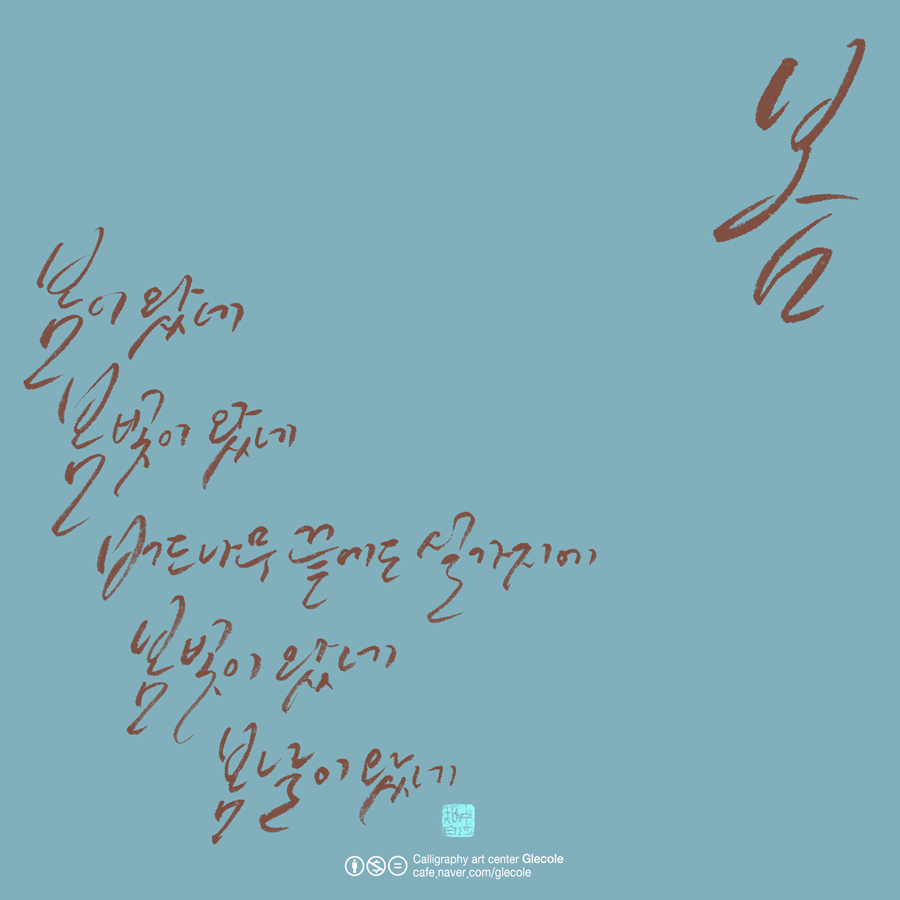 봄
봄이 왔네
봄빛이 왔네
버드나무 끝에도 실가지에
봄빛이 왔네
봄날이 왔네
Calligraphy art center Glecole
cafe.naver.com/glecole